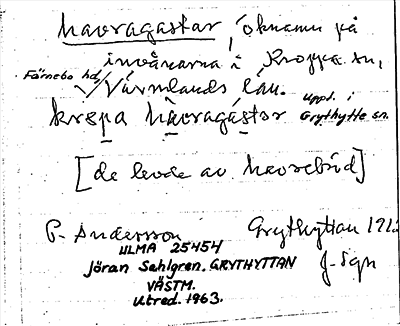 havragastar, öknamn på
invånarna i Kroppa sn,
Färnebo hd, Värmlands län.
krepa havragastor Uppt. i Grythytte sn.
[de levde av havrebröd]
P. Andersson Grythyttan 191
ULMA 25454 J. Sgn
Jöran Sahlgren. GRYTHYTTAN
VÄSTM.
Utred. 1963.